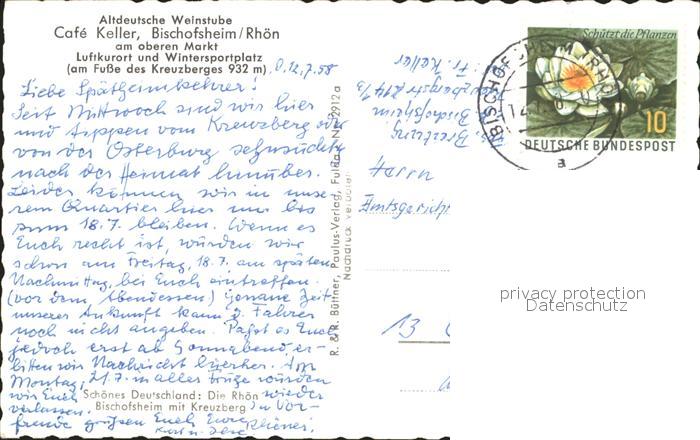 Altdeutsche Weinstube
Café Keller, Bischofsheim/Rhön
am oberen Markt
Luftkurort und Wintersportplatz
(am Fuße des Kreuzberges 932 m)
D. 12.7.58
Liebe Spätheimkehrer!
Seit Mittwoch sind wir hier
und tippen vom Kreuzberg od.
von der Osterburg sehnsüchtig
nach der Heimat hinüber.
Leider können wir in unse-
rem Quartier hier nur bis
zum 18.7. bleiben. Wenn es
Euch recht ist, würden wir
schon am Freitag, 18.7. am späten
Nachmittag, bei Euch eintreffen.
(vor dem Abendessen) genaue Zeit
unserer Ankunft kann d. Fahrer
noch nicht angeben. Paßt es Euch
jedoch erst ab Sonnabend, er-
bitten wir Nachricht hierher. Am
Montag, 21.7. in aller Frühe würden
wir Euch wieder
verlassen. In Vor-
freude grüßen Euch Eure
Kurt u.
Schönes Deutschland: Die Rhön
Bischofsheim mit Kreuzberg
R. & R. Büttner, Paulus-Verlag, Fulda Nr. 2912a
Nachdruck verboten
Fr. Keller
Bischofsheim
Herrn
Amtsgericht
13
Schützt die Pflanzen
10
DEUTSCHE BUNDESPOST
BISCHOFSHEIM RHÖN
a
privacy protection
Datenschutz